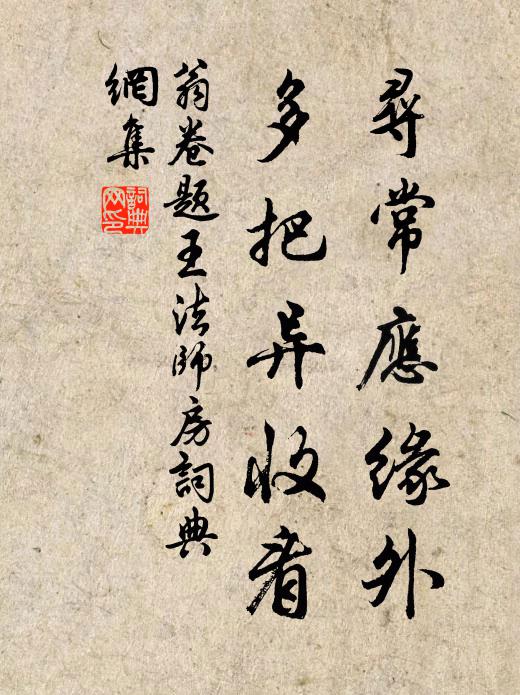 尋常應緣外
多把异收看
翁卷題王法師房詞典
網集
詞典網印